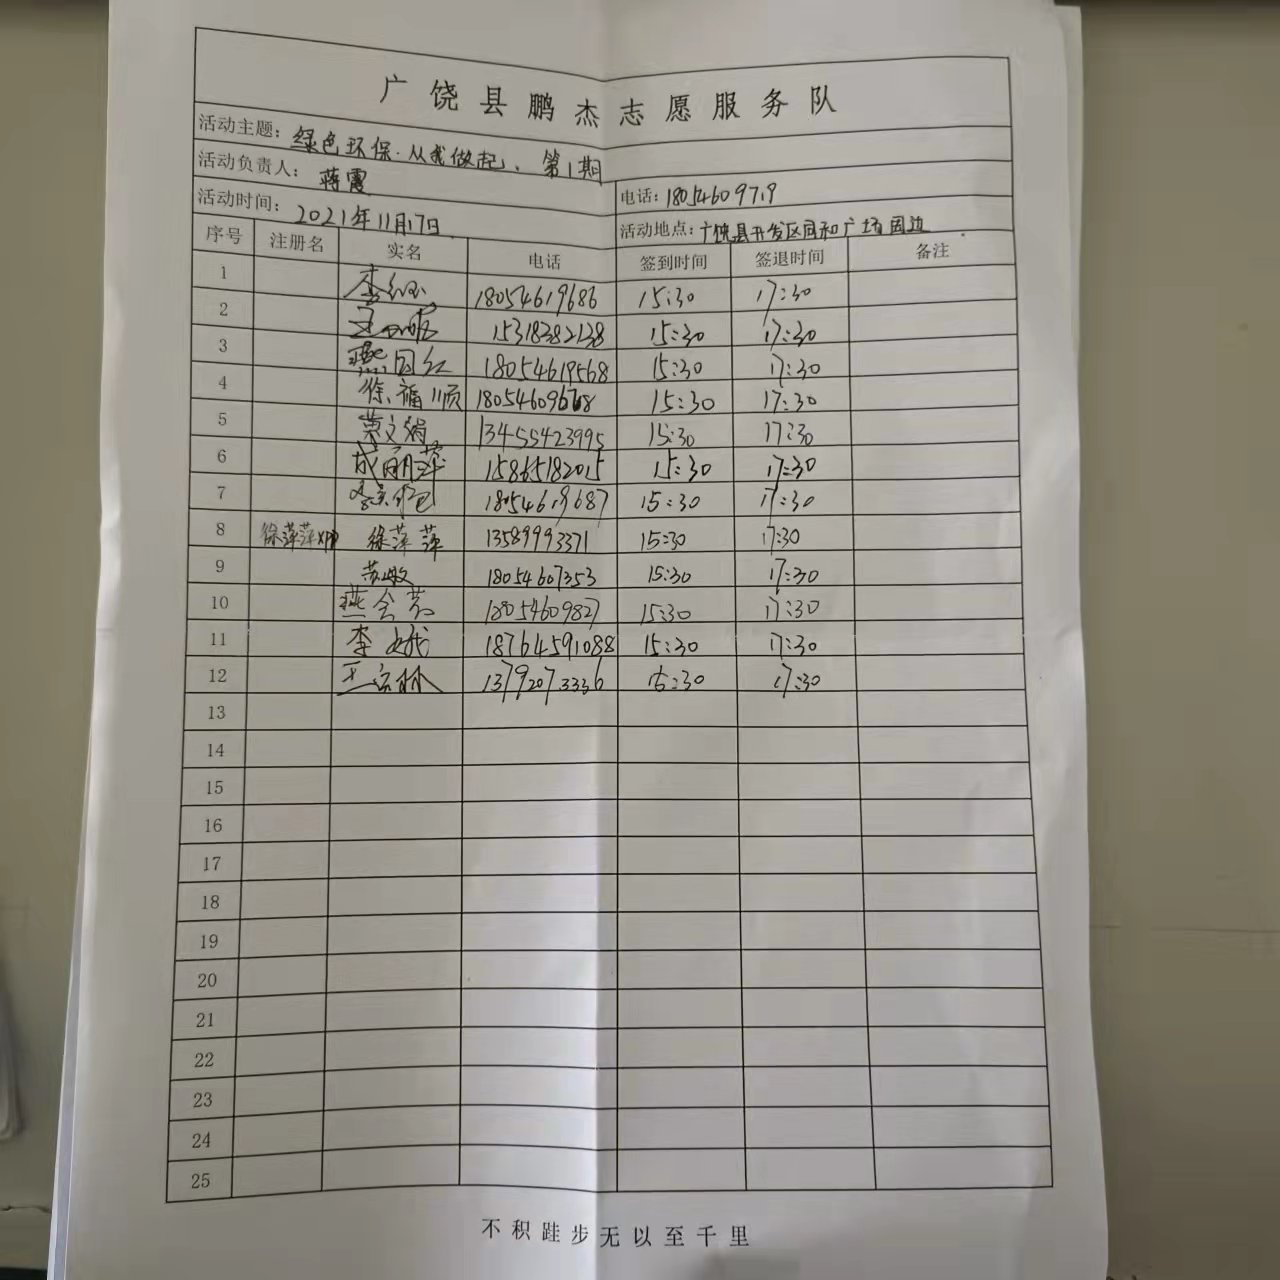 广饶县鹏杰志愿服务队
活动主题：绿色环保.从我做起、第1期
活动负责人：蒋霞 电话：18054609719
活动时间：2021年11月17日 活动地点：广饶县开发区同和广场周边
序号 注册名 实名 电话 签到时间 签退时间 备注
1 李 18054619686 15:30 17:30
2 15318382138 15:30 17:30
3 燕国红 18054619568 15:30 17:30
4 徐福顺 15:30 17:30
5 黄文娟 13455423995 15:30 17:30
6 成丽萍 15865182015 15:30 17:30
7 18054619687 15:30 17:30
8 徐萍萍xpp 徐萍萍 13589993371 15:30 17:30
9 苏敏 18054607353 15:30 17:30
10 燕会芳 18054609827 15:30 17:30
11 李娥 18764591088 15:30 17:30
12 王 13792073336 15:30 17:30
13
14
15
16
17
18
19
20
21
22
23
24
25
不积跬步无以至千里